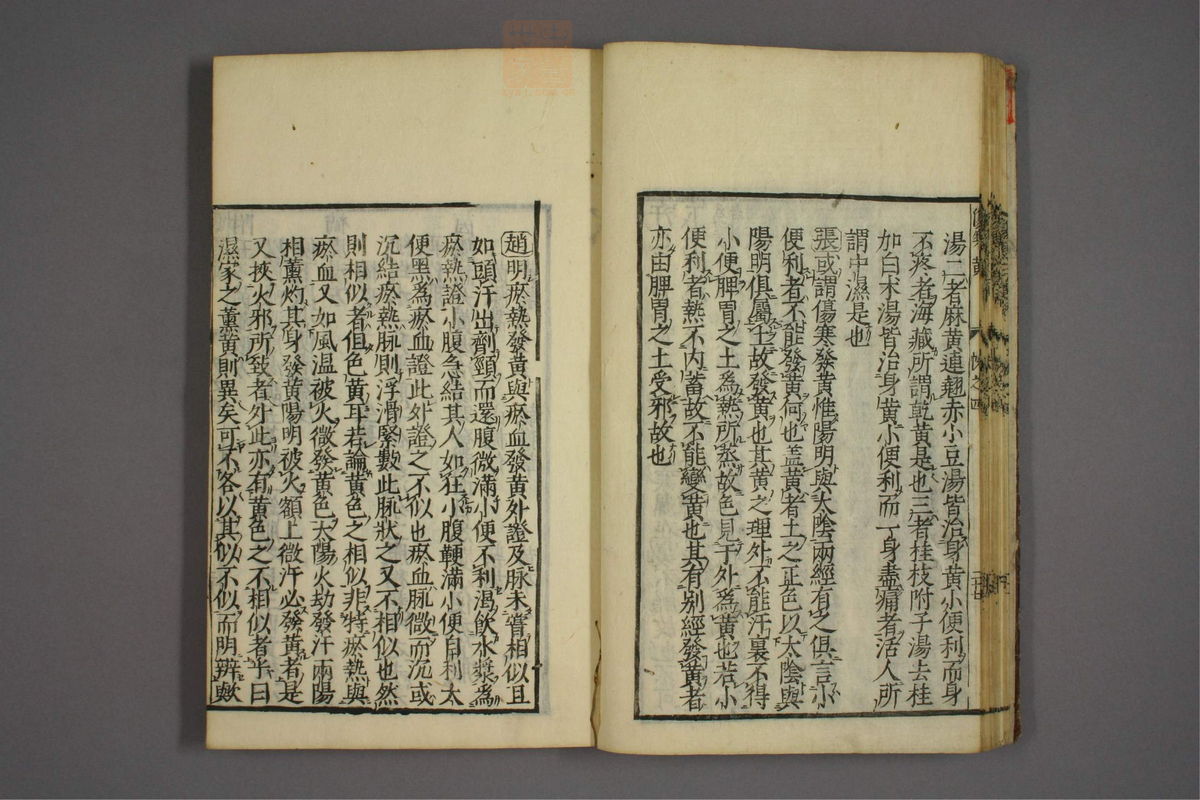 湯二者麻黃連翹赤小豆湯皆治身黃小便利而身
不疼者海藏所謂乾黃是也三者桂枝附子湯去桂
加白朮湯皆治身黃小便利而一身盡痛者活人所
謂中濕是也
張或謂傷寒發黃惟陽明與太陰兩經有之俱言小
便利者不能發黃何也盖黃者土之正色以太陰與
陽明俱屬土故發黃也其黃之理外不能汗裏不得
小便脾胃之土為熱所蒸故色見于外為黃也若小
便利者熱不内蓄故不能變黃也其有别經發黃者
亦由脾胃之土受邪故也
趙明瘀熱發黃與瘀血發黃外證及脉未嘗相似且
如頭汗出劑頸而還腹微滿小便不利渴飲水漿為
瘀熱證小腹急結其人如狂小腹鞕滿小便自利太
便黑為瘀血證此外證之不似也瘀血脉微而沉或
沉結瘀熱脉則浮滑緊數此脉狀之又不相似也然
則相似者但色黃耳若論黃色之相似非特瘀熱與
瘀血又如風温被火微發黃色太陽火劫發汗兩陽
相薰灼其身發黃陽明被火額上微汗必發黃者是
又挾火邪所致者外此亦有黃色之不相似者乎曰
濕家之薰黃則異矣可不各以其似不似而明辨歟